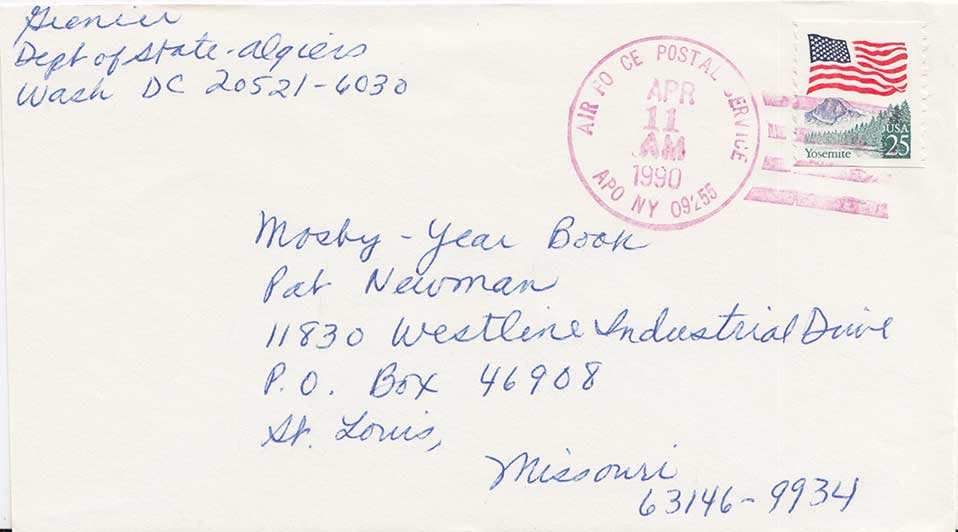 Grenier
Dept of State-Algiers
Wash DC 20521-6030
AIR FO CE POSTAL SERVICE
APR
11
AM
1990
APO NY 09255
USA
25
Yosemite
Mosby-Year Book
Pat Newman
11830 Westline Industrial Drive
P.O. Box 46908
St. Louis,
Missouri
63146-9934